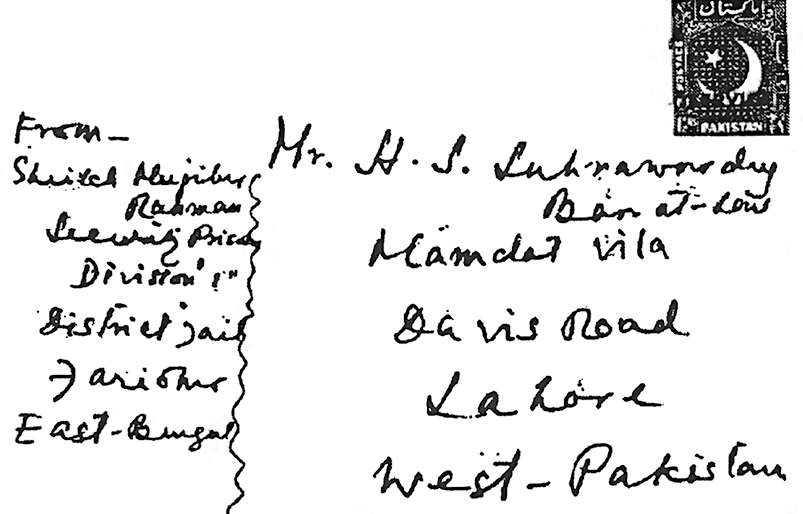 پاکستان
POSTAGE
PAKISTAN
From-
Sheikh Mujibur
Rahman
Security Prison
Division "1"
District Jail
Faridpur
East-Bengal
Mr. H. S. Suhrawordy
Bar at-Law
Mamdot vila
Davis Road
Lahore
West-Pakistan